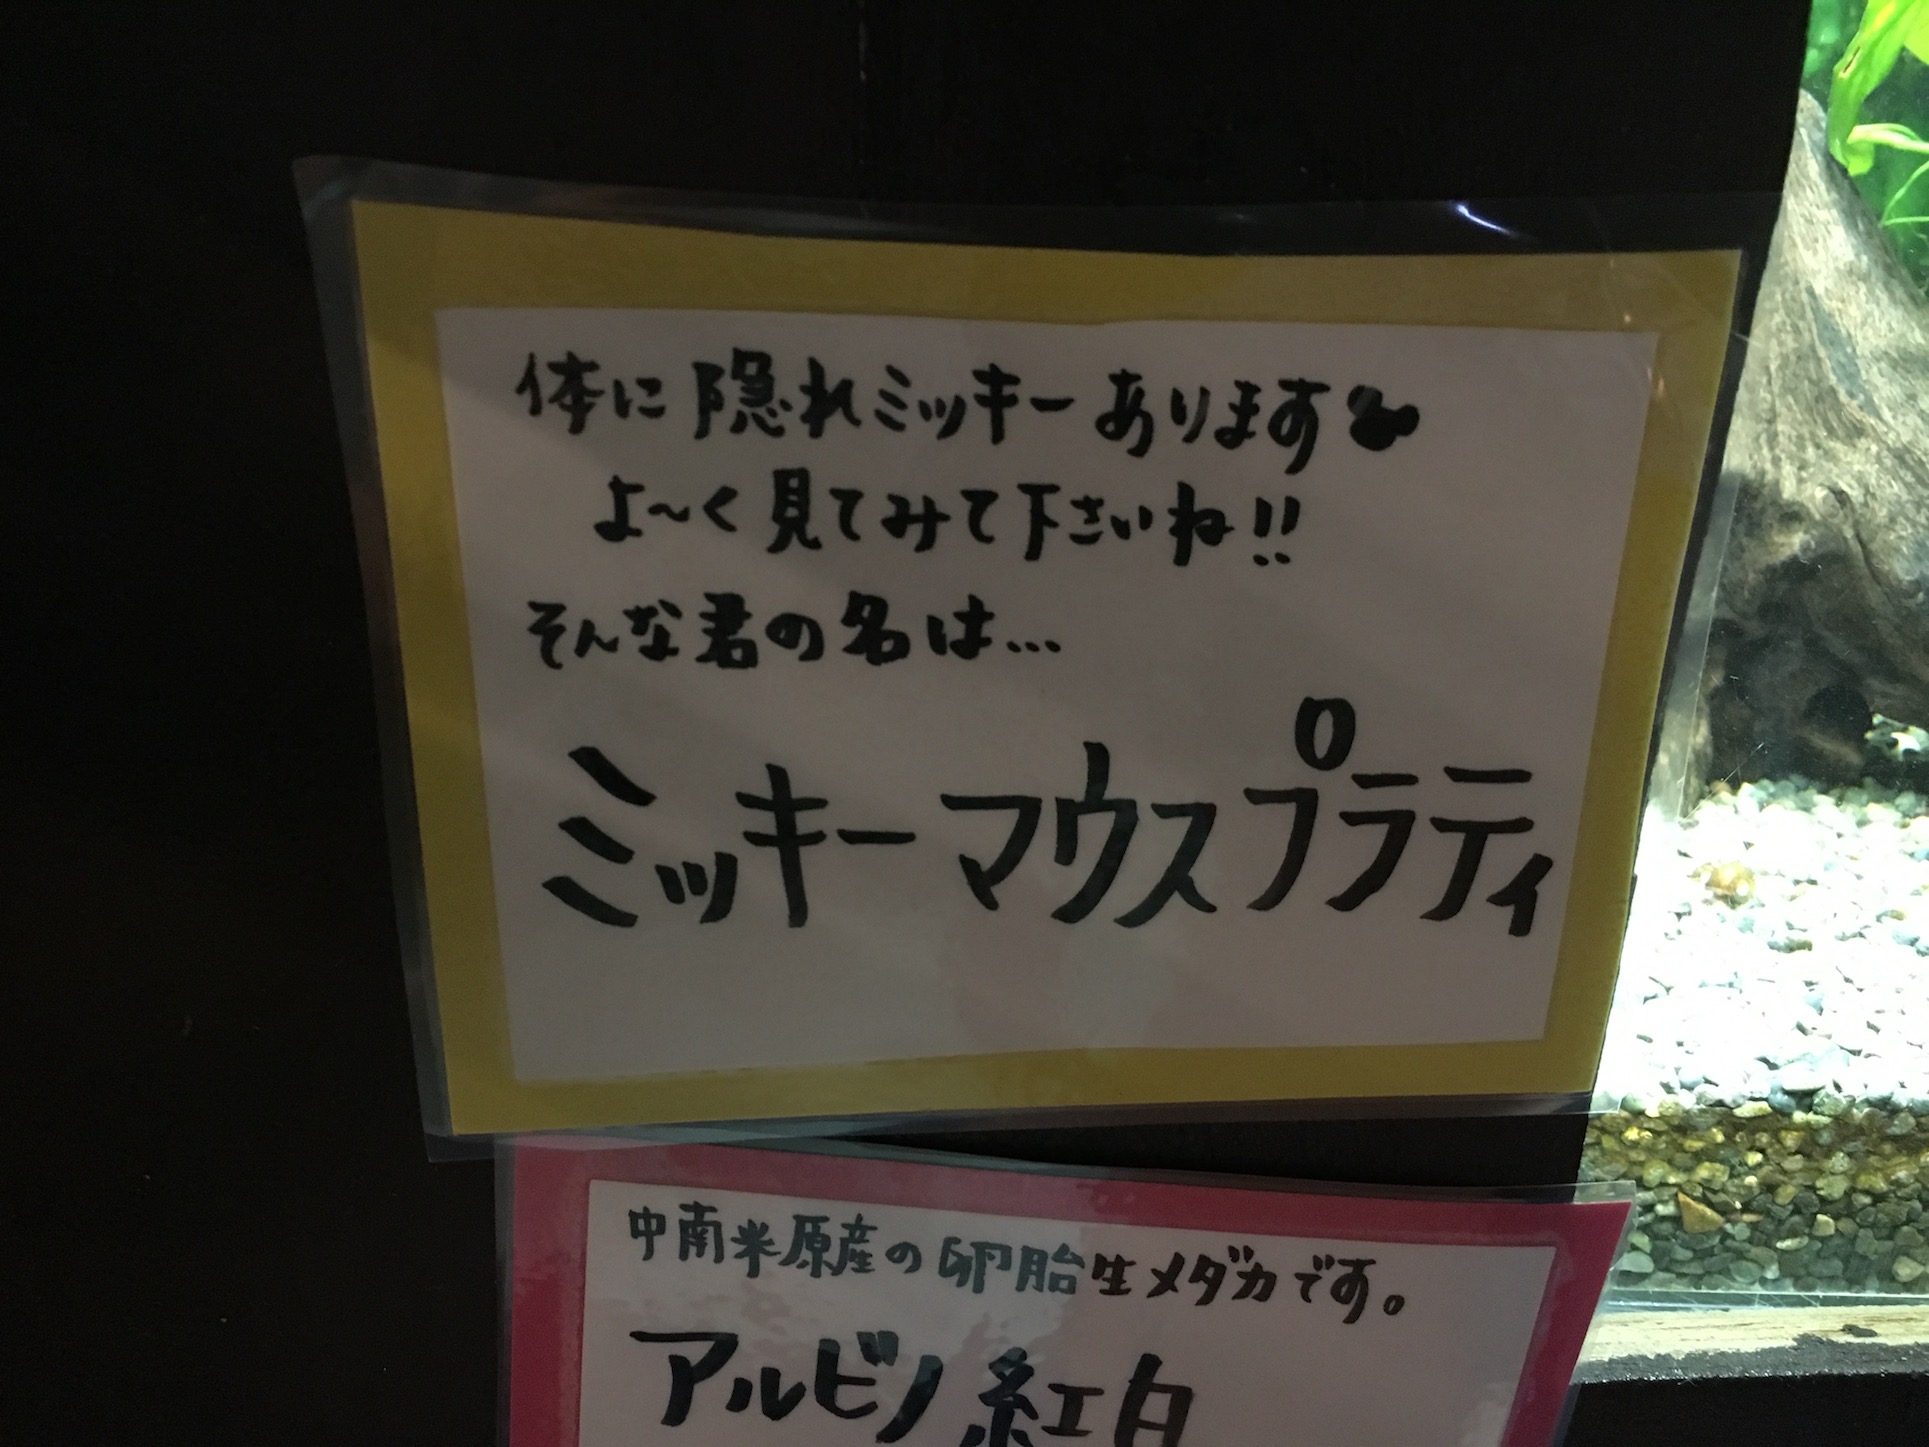 体に隠れミッキーあります
よ～く見てみて下さいね!!
そんな君の名は…
ミッキーマウスプラティ
中南米原産の卵胎生メダカです。
アルビノ紅白